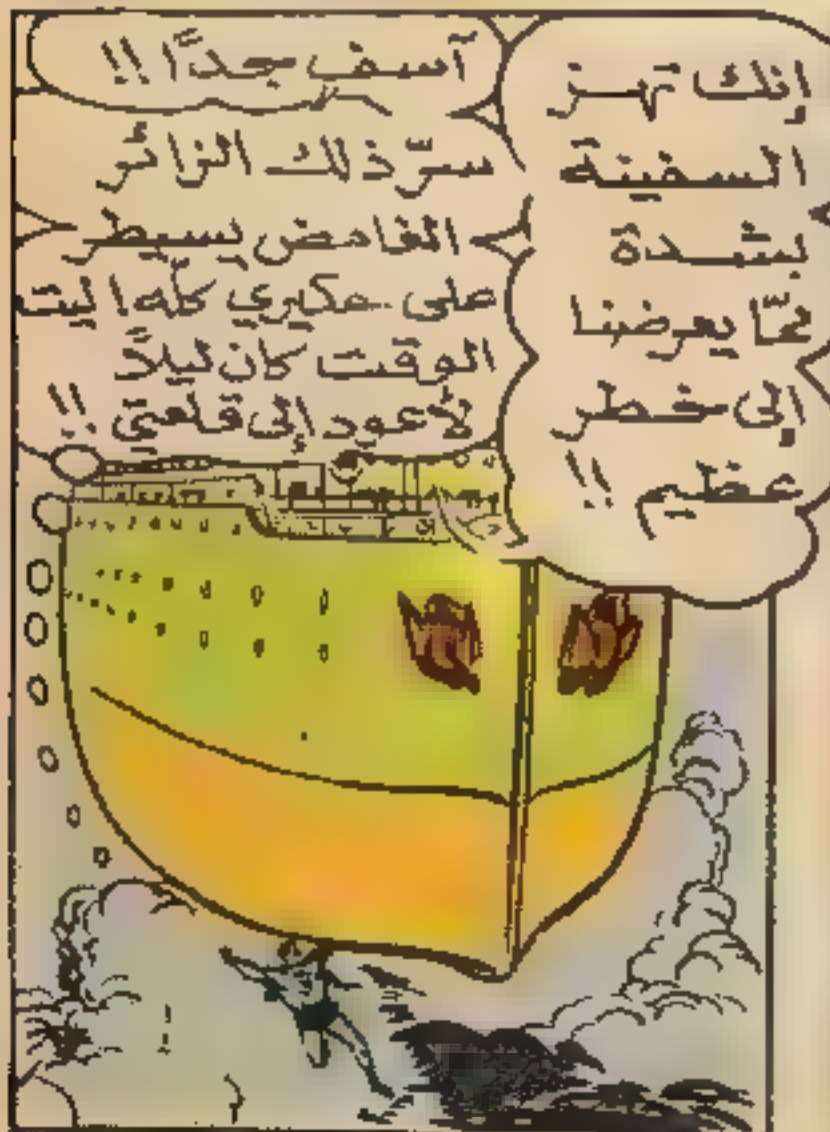 إنك تهـز
السفينة
بشدة
ممّا يعرضنا
إلى خطر
عظيم !!
آسف جدًّا !!
سرّ ذلك الزائر
الغامض يسيطر
على تفكيري كلّه ! ليت
الوقت كان ليلاً
لأعود إلى قلعتي !!